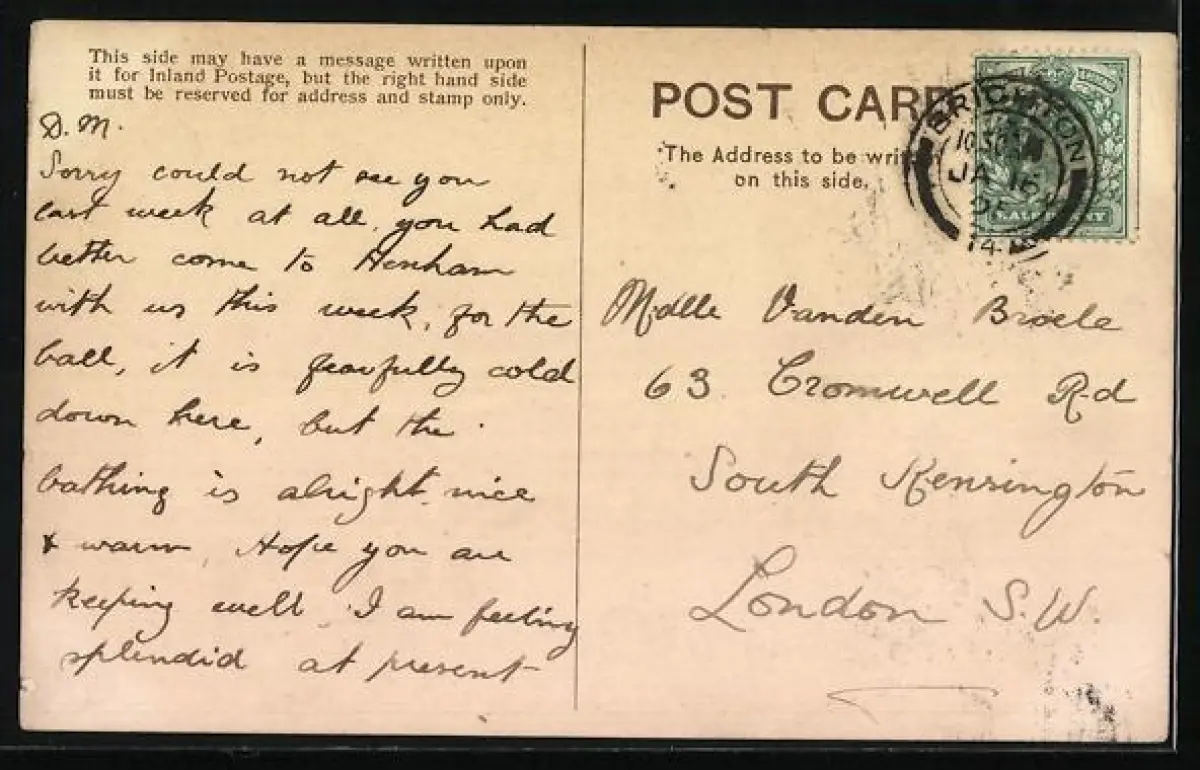 This side may have a message written upon
it for Inland Postage, but the right hand side
must be reserved for address and stamp only.
D. M.
Sorry could not see you
last week at all, you had
better come to Henham
with us this week, for the
ball, it is fearfully cold
down here, but the
bathing is alright nice
& warm, Hope you are
keeping well. I am feeling
splendid at present
POST CARD
The Address to be written
on this side.
BRIGHTON
10.30
JA 16
05
14
HALFPENNY
Mdlle Vanden Broele
63 Cromwell Rd
South Kensington
London S.W.